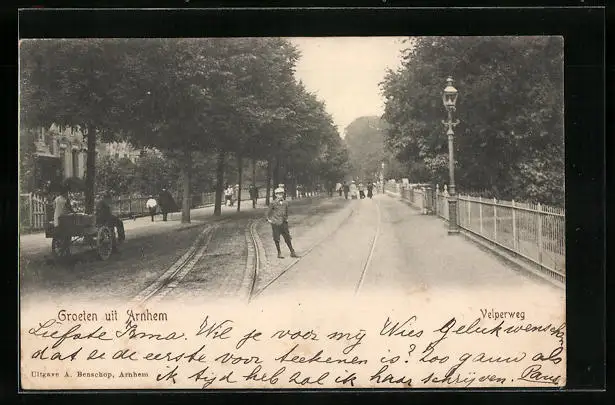 Groeten uit Arnhem
Velperweg
Liefste Irma. Wil je voor mij Wies gelukwenschen
dat ze de eerste voor teekenen is? Zoo gauw als
Uitgave A. Benschop, Arnhem
ik tijd heb zal ik haar schrijven.